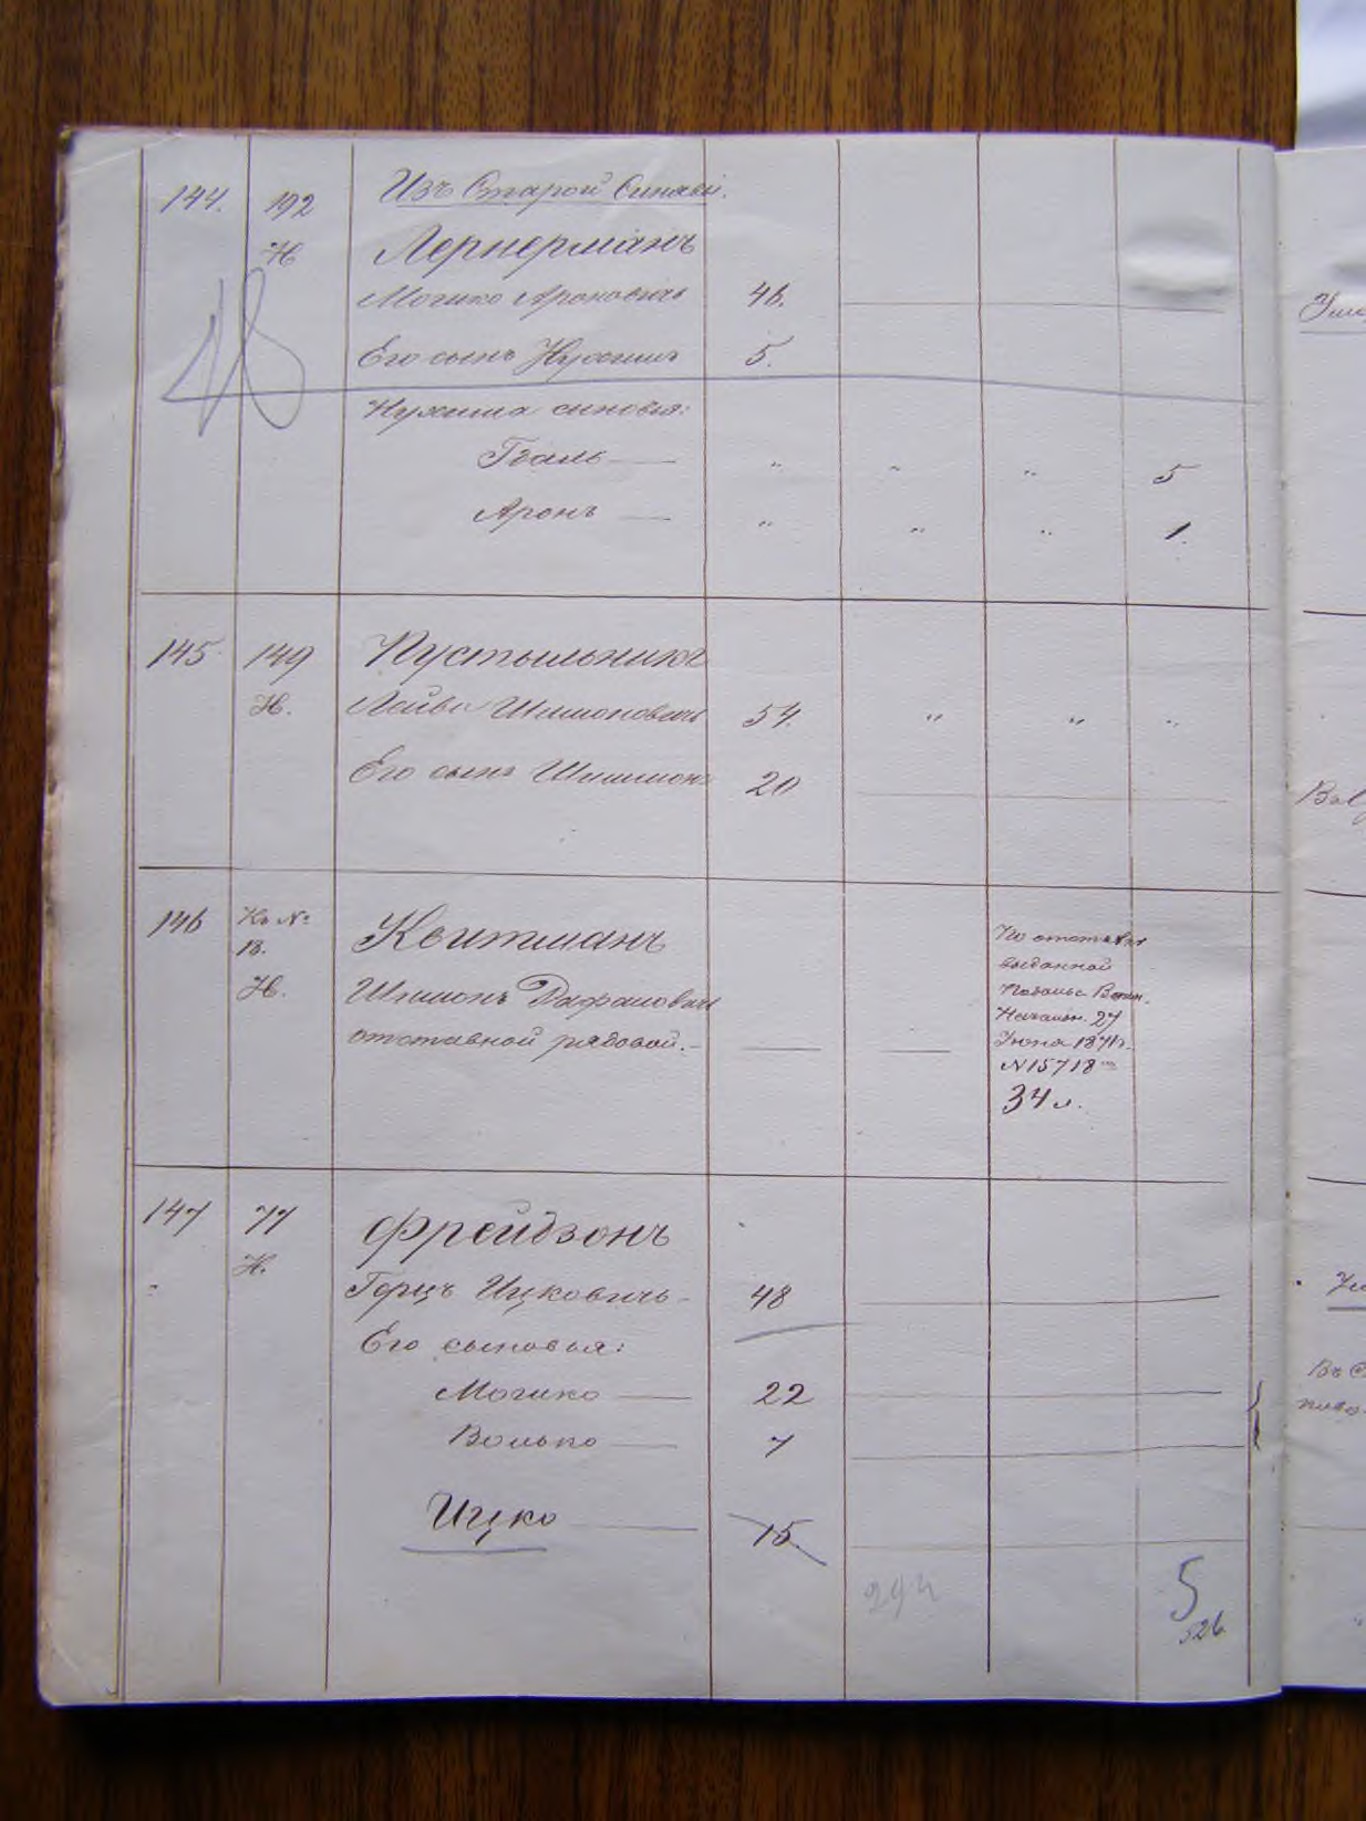 144. 192 Изъ Старой Синавы.
Н Лернерманъ
Мошко Ароновичъ 46.
Его сынъ Нухимъ 5.
Нухима сыновья:
— " " " 5
Аронъ — " " " 1.
145 149 Пустыльникъ
Н. Лейба Шимоновичъ 54. " " "
Его сынъ Шимонъ 20
146 Къ №
18.
Н.
Койтманъ
Шимонъ
отставной рядовой. —
По отставкѣ
выданной
Подольс. Воин.
Начальн. 27
Іюня 1871г.
N 15718
34 л.
147 77 Фрейдзонъ
Н.
Герцъ Ицковичъ 48
Его сыновья:
Мошко — 22
Волько — 7
Ицко — 15
294
5
526